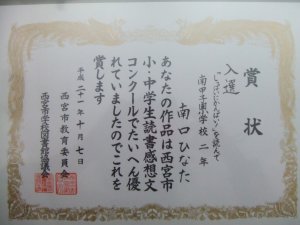 賞状
入選
「しっぱいにかんぱい！」を読んで
南甲子園小学校 二年
南口ひなた
あなたの作品は西宮市
小・中学生読書感想文
コンクールでたいへん優
れていましたのでこれを
賞します
平成二十一年十月七日
西宮市教育委員会
西宮市学校図書館協議会